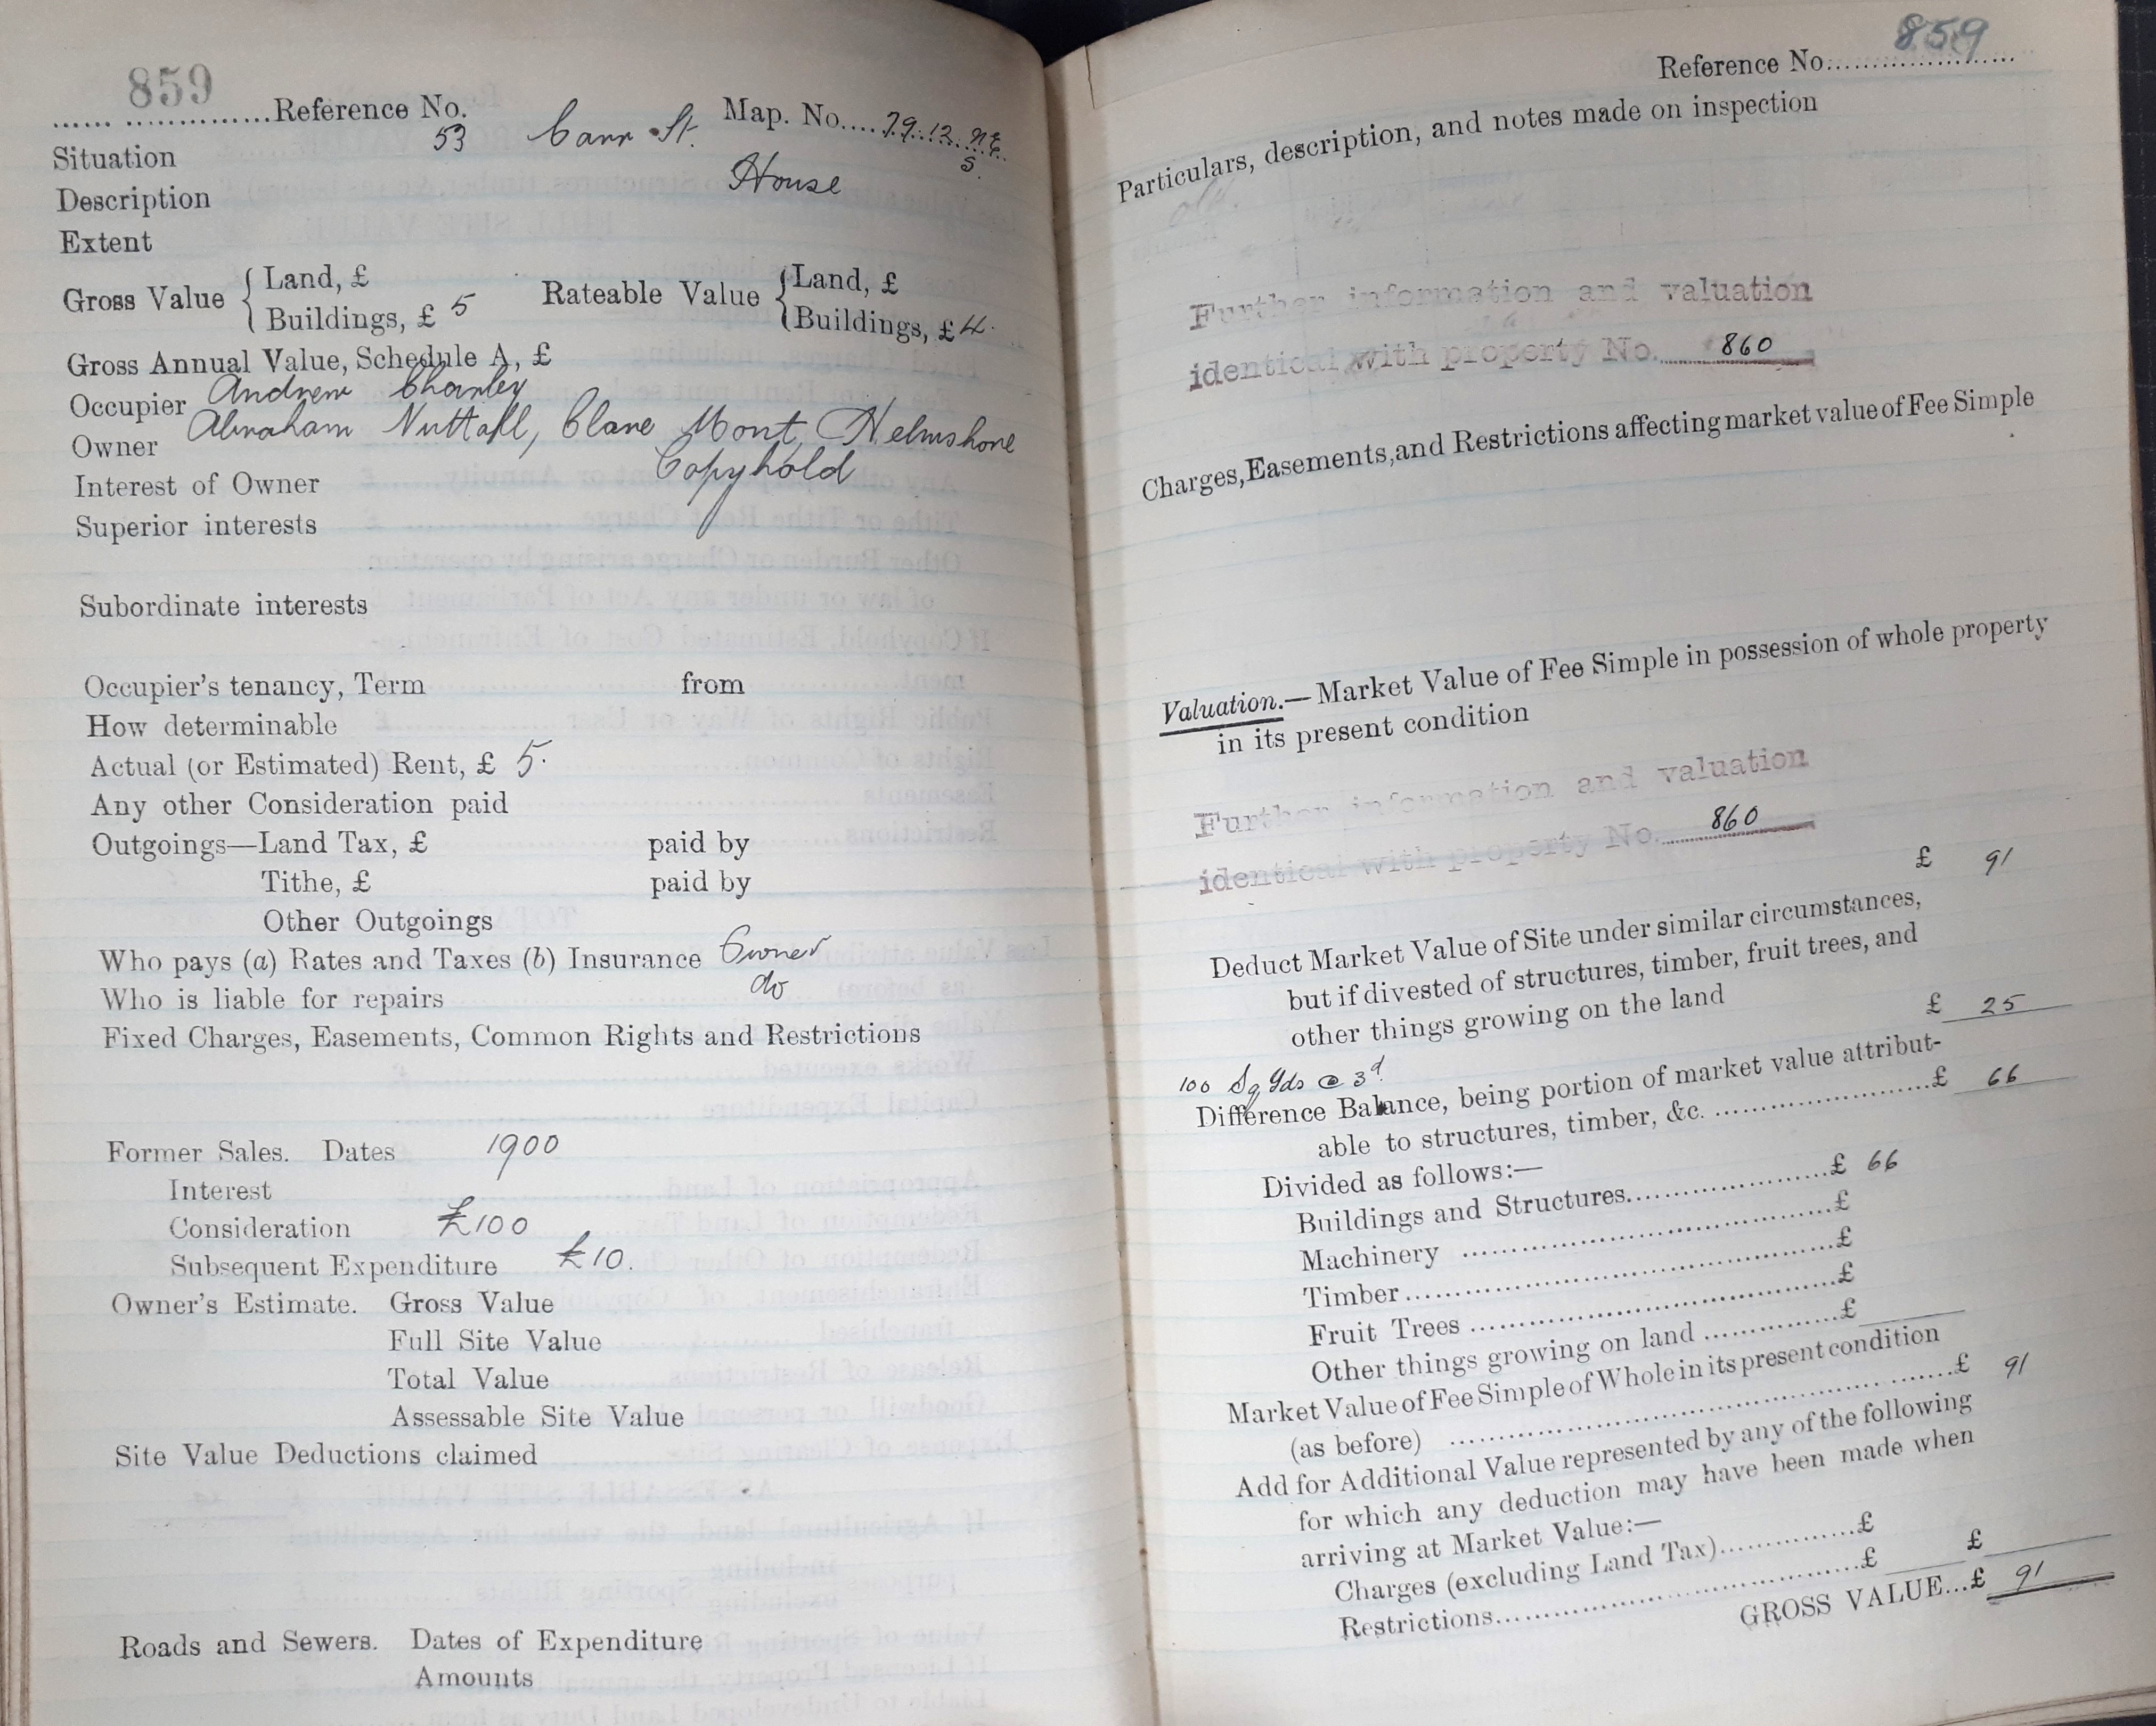 859
...... ..............Reference No. Map. No....79.12.NE
S.
Situation 53 Carr St.
Description House
Extent
Gross Value { Land, £
Buildings, £ 5 Rateable Value { Land, £
Buildings, £ 4.
Gross Annual Value, Schedule A, £
Occupier Andrew
Owner Abraham Nuttall, Clare Mont, Helmshore
Interest of Owner Copyhold
Superior interests
Subordinate interests
Occupier's tenancy, Term from
How determinable
Actual (or Estimated) Rent, £ 5.
Any other Consideration paid
Outgoings—Land Tax, £ paid by
Tithe, £ paid by
Other Outgoings
Who pays (a) Rates and Taxes (b) Insurance Owner
Who is liable for repairs do
Fixed Charges, Easements, Common Rights and Restrictions
Former Sales. Dates 1900
Interest
Consideration £100
Subsequent Expenditure £10.
Owner's Estimate. Gross Value
Full Site Value
Total Value
Assessable Site Value
Site Value Deductions claimed
Roads and Sewers. Dates of Expenditure
Amounts
Reference No. 859
Particulars, description, and notes made on inspection
Further information and valuation
identical with property No. 860
Charges, Easements, and Restrictions affecting market value of Fee Simple
Valuation.—Market Value of Fee Simple in possession of whole property
in its present condition
Further information and valuation
identical with property No. 860
£ 91
Deduct Market Value of Site under similar circumstances,
but if divested of structures, timber, fruit trees, and
other things growing on the land £ 25
100 Sq Yds @ 3d.
Difference Balance, being portion of market value attribut-
able to structures, timber, &c. ........£ 66
Divided as follows:—
Buildings and Structures........£ 66
Machinery ........£
Timber........£
Fruit Trees ........£
Other things growing on land ........£
Market Value of Fee Simple of Whole in its present condition
(as before) ........£ 91
Add for Additional Value represented by any of the following
for which any deduction may have been made when
arriving at Market Value:—
Charges (excluding Land Tax)........£
Restrictions........£ £
GROSS VALUE...£ 91